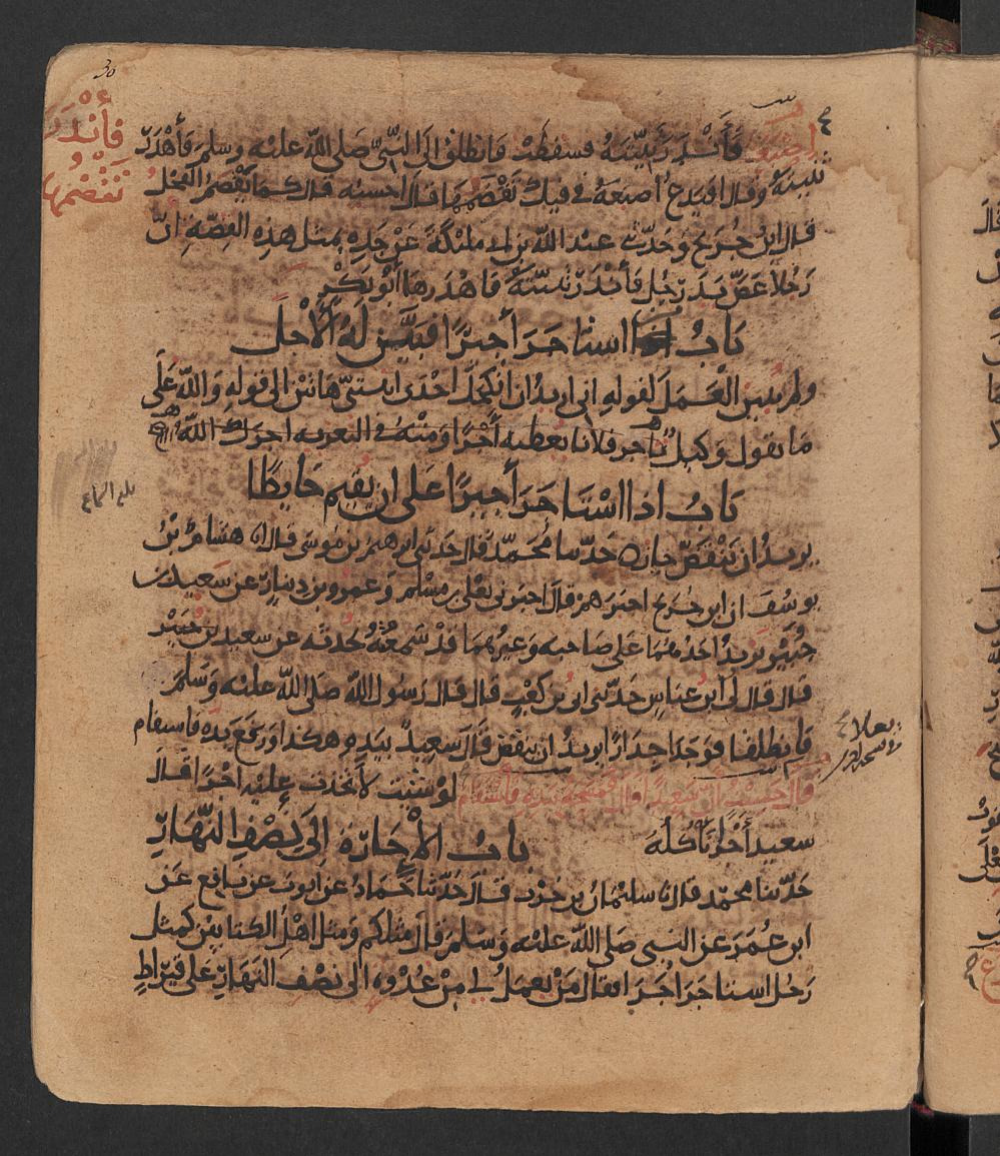 30
فأندر
تقضمها
اصبعه فأندر ثنيته فسقطت فانطلق الى النبي صلى الله عليه وسلم فأهدر
ثنيته وقال افيدع اصبعه في فيك تقضمها قال احسبه قال كما يقضم الفحل
قال ابن جريج وحدثني عبد الله بن ابي مليكة عن جده بمثل هذه القصة ان
رجلا عض يد رجل فأندر ثنيته فاهدرها ابو بكر
باب استاجر أجيرا فبين له الأجل
ولم يبين العمل لقوله اني اريد ان انكحك احدى ابنتي هاتين الى قوله والله على
ما نقول وكيل تاجر فلانا تعطيه أجرا ومنه في التعزية اجرك الله
باب اذا استاجر أجيرا على ان يقيم حايطا
بلغ السماع
يريد ان ينقض جاز حدثنا محمد قال حدثني ابرهيم بن موسى قال انا هشام بن
يوسف ان ابن جريج اخبرهم قال اخبرني يعلى بن مسلم وعمرو بن دينار عن سعيد بن
جبير يزيد احدهما على صاحبه وغيرهما قد سمعته يحدثه عن سعيد بن جبير
قال قال لي ابن عباس حدثني ابي بن كعب قال قال رسول الله صلى الله عليه وسلم
فانطلقا فوجدا جدارا يريد ان ينقض قال سعيد بيده هكذا ورفع يده فاستقام
قال حسبت ان سعيدا قال فمسحه بيده فاستقام لو شئت لاتخذت عليه اجرا قال
سعيد أجرا ناكله باب الإجارة الى نصف النهار
حدثنا محمد قال نا سليمان بن حرب قال حدثنا حماد عن ايوب عن نافع عن
ابن عمر عن النبي صلى الله عليه وسلم قال مثلكم ومثل اهل الكتابين كمثل
رجل استاجر اجرا فقال من يعمل لي من غدوة الى نصف النهار على قيراط